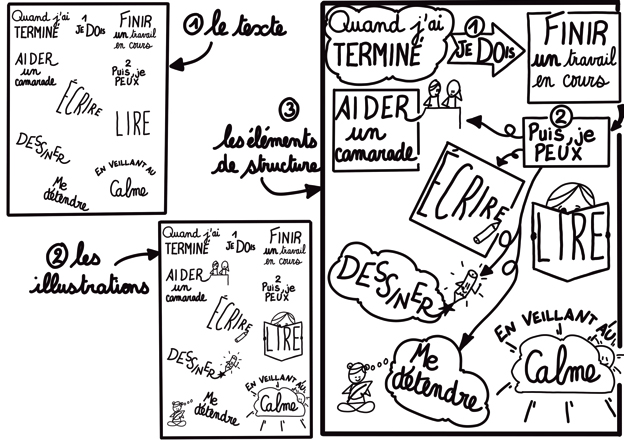 Quand j'ai
TERMINÉ
1
JE DOIS
FINIR
un travail
en cours
AIDER
un
camarade
2
Puis, je
PEUX
ÉCRIRE
LIRE
DESSINER
EN VEILLANT AU
Calme
Me
détendre
① le texte
② les
illustrations
Quand j'ai
TERMINÉ
1
JE DOIS
FINIR
un travail
en cours
AIDER
un
camarade
2
Puis, je
PEUX
ÉCRIRE
LIRE
DESSINER
EN VEILLANT AU
Calme
Me
détendre
③
les éléments
de structure
Quand j'ai
TERMINÉ
①
JE DOIS
FINIR
un travail
en cours
AIDER
un
camarade
②
Puis, je
PEUX
ÉCRIRE
LIRE
DESSINER
EN VEILLANT AU
Calme
Me
détendre